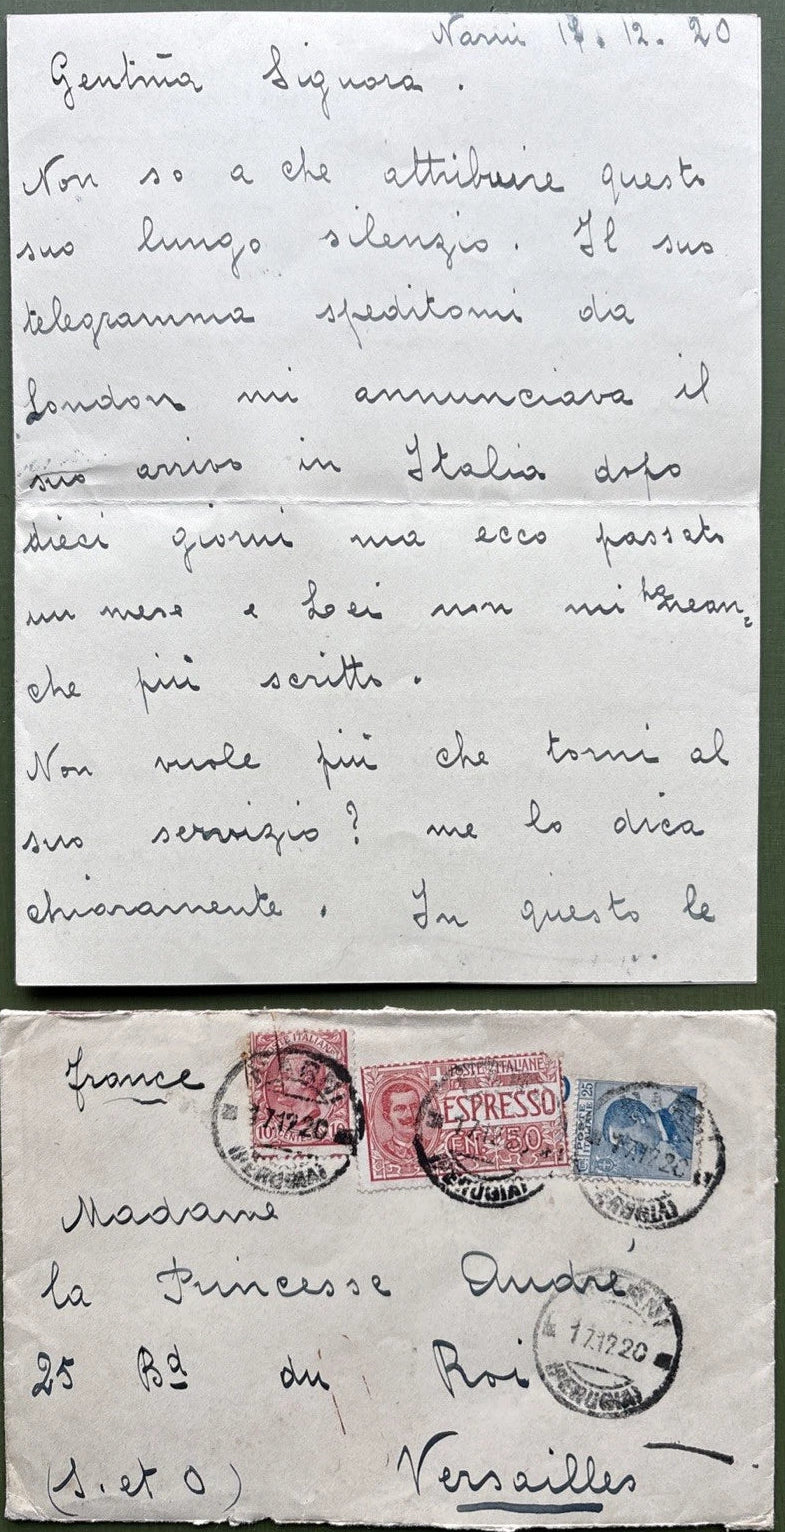 Narni 17. 12. 20
Gentiña Signora.
Non so a che attribuire questo
suo lungo silenzio. Il suo
telegramma speditomi da
London mi annunciava il
suo arrivo in Italia dopo
dieci giorni ma ecco passato
un mese e Lei non mi ha nean=
che più scritto.
Non vuole più che torni al
suo servizio? me lo dica
chiaramente. In questo le
France
POSTE ITALIANE
10
17.12.20
(PERUGIA)
POSTE ITALIANE
ESPRESSO
CENT. 50
(PERUGIA)
POSTE
25
17.12.20
(PERUGIA)
Madame
la Princesse André
NARNI
17.12.20
(PERUGIA)
25 Bd du Roi
(S. et O)
Versailles